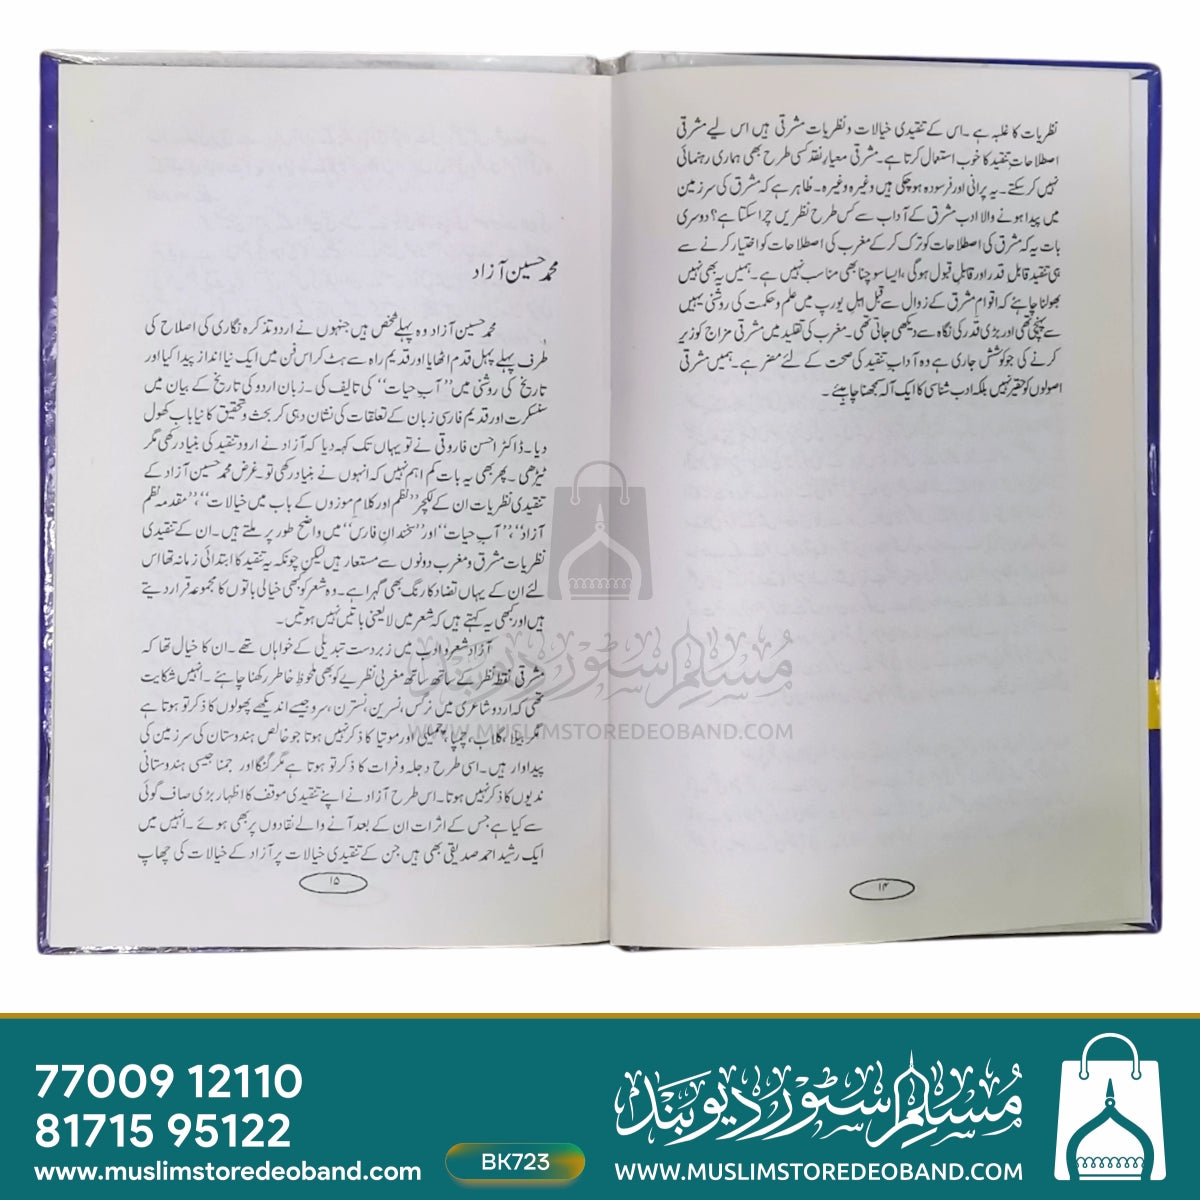 نظریات کا غلبہ ہے۔ اس کے تنقیدی خیالات و نظریات مشرقی ہیں اس لیے مشرقی
اصطلاحاتِ تنقید کا خوب استعمال کرتا ہے۔ مشرقی معیارِ نقد کسی طرح بھی ہماری رہنمائی
نہیں کر سکتے۔ یہ پرانی اور فرسودہ ہو چکی ہیں وغیرہ وغیرہ۔ ظاہر ہے کہ مشرق کی سرزمین
میں پیدا ہونے والا ادب مشرق کے آداب سے کس طرح نظریں چرا سکتا ہے؟ دوسری
بات یہ کہ مشرق کی اصطلاحات کو ترک کر کے مغرب کی اصطلاحات کو اختیار کرنے سے
ہی تنقید قابل قدر اور قابلِ قبول ہوگی، ایسا سوچنا بھی مناسب نہیں ہے۔ ہمیں یہ بھی نہیں
بھولنا چاہئے کہ اقوامِ مشرق کے زوال سے قبل اہلِ یورپ میں علم و حکمت کی روشنی یہیں
سے پہنچی تھی اور بڑی قدر کی نگاہ سے دیکھی جاتی تھی۔ مغرب کی تقلید میں مشرقی مزاج کو زیر
کرنے کی جو کوشش جاری ہے وہ آدابِ تنقید کی صحت کے لئے مضر ہے۔ ہمیں مشرقی
اصولوں کو حقیر نہیں بلکہ ادب شناسی کا ایک آلہ سمجھنا چاہیئے۔
۱۴
محمد حسین آزاد
محمد حسین آزاد وہ پہلے شخص ہیں جنہوں نے اردو تذکرہ نگاری کی اصلاح کی
طرف پہلے پہل قدم اٹھایا اور قدیم راہ سے ہٹ کر اس فن میں ایک نیا انداز پیدا کیا اور
تاریخ کی روشنی میں ’’آبِ حیات‘‘ کی تالیف کی۔ زبان اردو کی تاریخ کے بیان میں
سنسکرت اور قدیم فارسی زبان کے تعلقات کی نشان دہی کر بحث و تحقیق کا نیا باب کھول
دیا۔ ڈاکٹر احسن فاروقی نے تو یہاں تک کہہ دیا کہ آزاد نے اردو تنقید کی بنیاد رکھی مگر
ٹیڑھی۔ پھر بھی یہ بات کم اہم نہیں کہ انہوں نے بنیاد رکھی تو۔ غرض محمد حسین آزاد کے
تنقیدی نظریات ان کے لکچر ’’نظم اور کلامِ موزوں کے باب میں خیالات‘‘، ’’مقدمہ نظم
آزاد‘‘، ’’آبِ حیات‘‘ اور ’’سخندانِ فارس‘‘ میں واضح طور پر ملتے ہیں۔ ان کے تنقیدی
نظریات مشرق و مغرب دونوں سے مستعار ہیں لیکن چونکہ یہ تنقید کا ابتدائی زمانہ تھا اس
لئے ان کے یہاں تضاد کا رنگ بھی گہرا ہے۔ وہ شعر کو کبھی خیالی باتوں کا مجموعہ قرار دیتے
ہیں اور کبھی یہ کہتے ہیں کہ شعر میں لایعنی باتیں نہیں ہوتیں۔
آزاد شعر و ادب میں زبردست تبدیلی کے خواہاں تھے۔ ان کا خیال تھا کہ
مشرقی نقطۂ نظر کے ساتھ ساتھ مغربی نظریے کو بھی ملحوظِ خاطر رکھنا چاہئے۔ انہیں شکایت
تھی کہ اردو شاعری میں نرگس، نسرین، نسترن، سرو جیسے اندیکھے پھولوں کا ذکر تو ہوتا ہے
مگر بیلا، گلاب، چمپا، چمیلی اور موتیا کا ذکر نہیں ہوتا جو خالص ہندوستان کی سرزمین کی
پیداوار ہیں۔ اسی طرح دجلہ و فرات کا ذکر تو ہوتا ہے مگر گنگا اور جمنا جیسی ہندوستانی
ندیوں کا ذکر نہیں ہوتا۔ اس طرح آزاد نے اپنے تنقیدی موقف کا اظہار بڑی صاف گوئی
سے کیا ہے جس کے اثرات ان کے بعد آنے والے نقادوں پر بھی ہوئے۔ انہیں میں
ایک رشید احمد صدیقی بھی ہیں جن کے تنقیدی خیالات پر آزاد کے خیالات کی چھاپ
۱۵
مسلم سٹور دیوبند
WWW.MUSLIMSTOREDEOBAND.COM
77009 12110
81715 95122
www.muslimstoredeoband.com
BK723
مسلم سٹور دیوبند
WWW.MUSLIMSTOREDEOBAND.COM